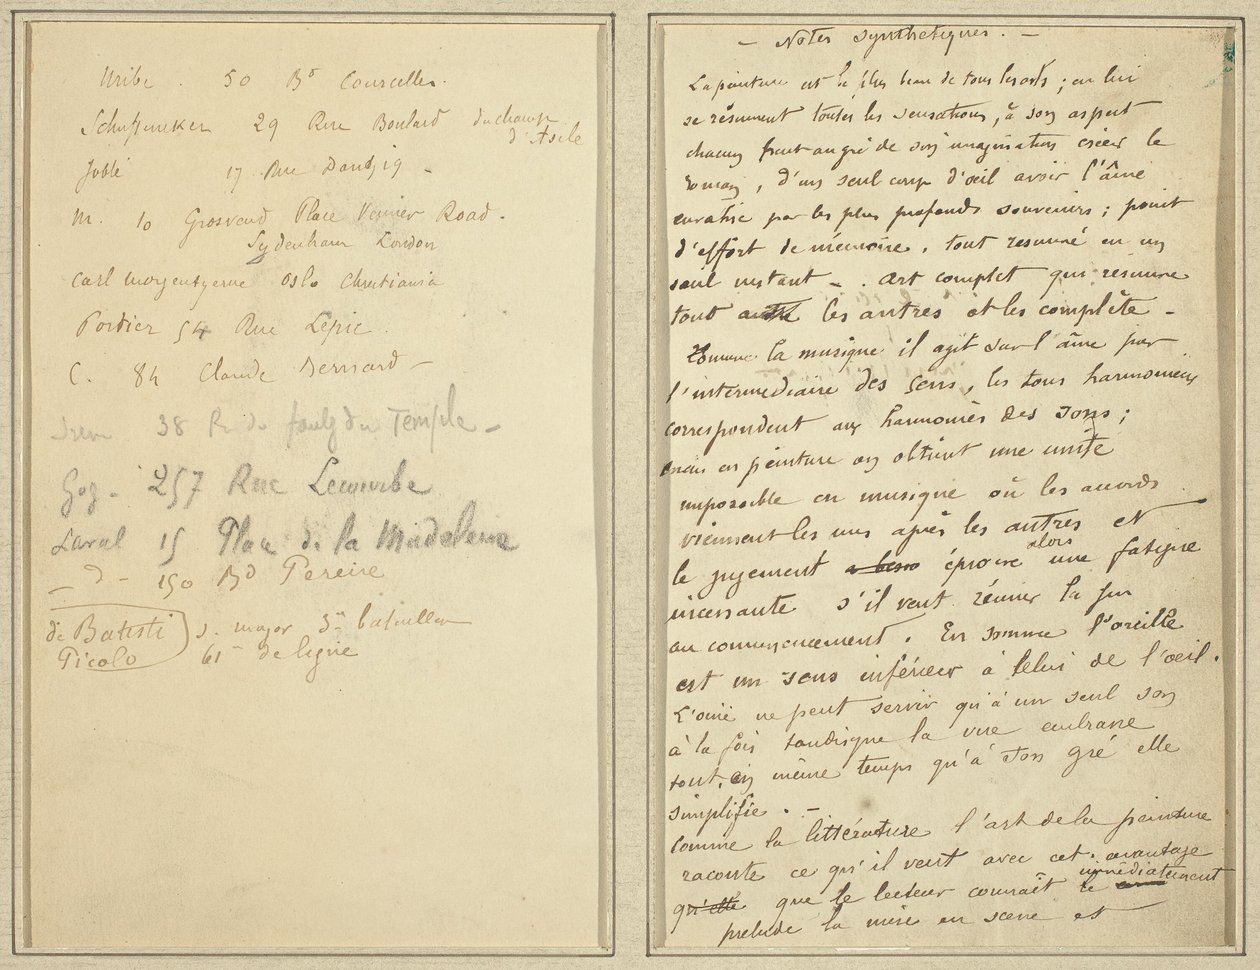 Uribe 50 Bd Courcelles.
Schuffeneker 29 Rue Boulard du champ
d'Asile
Jobbé 17 Rue Dantzig -
M. 10 Grosvend Place Venner Road.
Sydenham London
Carl morgenstjerne Oslo Christiania
Portier 54 Rue Lepic
C. 84 Claude Bernard -
38 R. du faubg du Temple -
Gog - 257 Rue Lecourbe
Laval 15 Place de la Madeleine
- d - 150 Bd Pereire
de Batisti s. major 3me bataillon
Picolo 61me de ligne
- Notes synthetiques. -
La peinture est le plus beau de tous les arts ; en lui
se résument toutes les sensations, à son aspect
chacun peut au gré de son imagination créer le
roman, d'un seul coup d'oeil avoir l'âme
envahie par les plus profonds souvenirs ; point
d'effort de mémoire, tout resumé en un
seul instant -. Art complet qui resume
tout autre les autres et les complète -
Comme la musique il agit sur l'âme par
l'intermediaire des sens, les tons harmonieux
correspondent aux harmonies des sons ;
mais en peinture on obtient une unité
impossible en musique où les accords
viennent les uns après les autres et
le jugement a besoin éprouve alors une fatigue
incessante s'il veut réunir la fin
au commencement. En somme l'oreille
est un sens inférieur à celui de l'oeil.
L'ouie ne peut servir qu'à un seul son
à la fois tandisque la vue embrasse
tout, en même temps qu'à son gré elle
simplifie. -
Comme la littérature l'art de la peinture
raconte ce qu'il veut avec cet avantage
qu'elle que le lecteur connait immédiatement le
prelude la mise en scene et